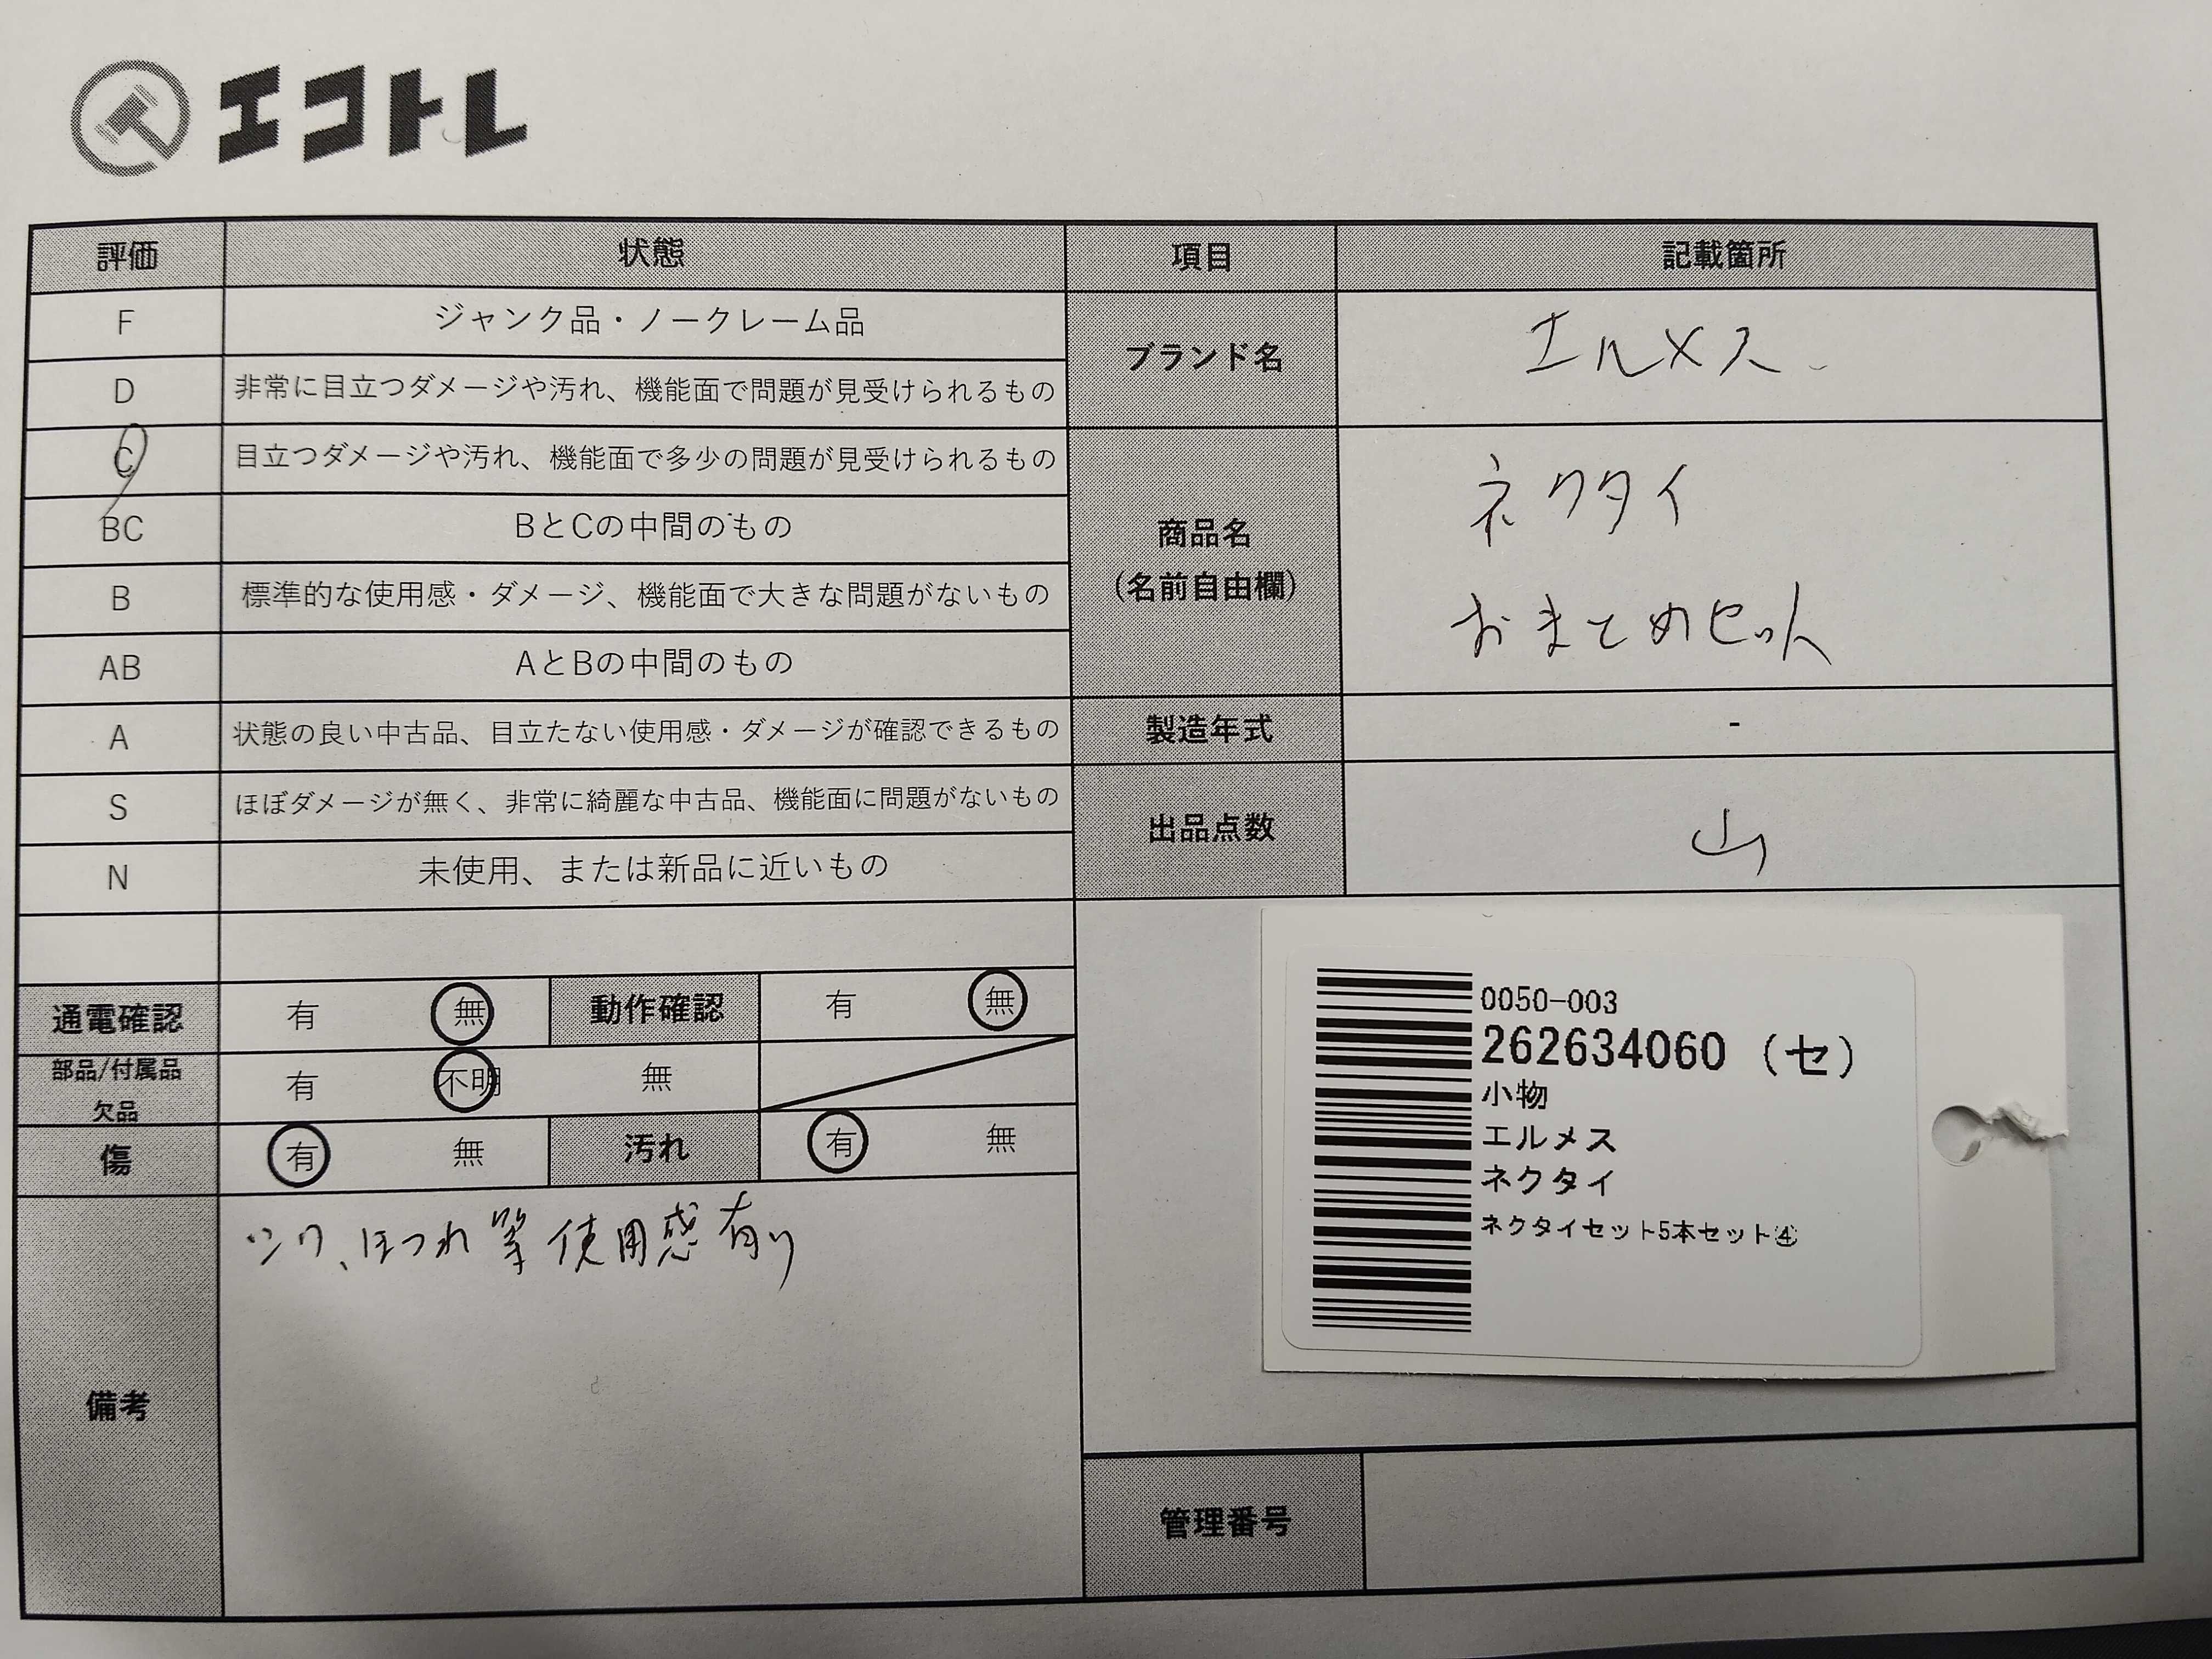 エコトレ
評価 状態 項目 記載箇所
F ジャンク品・ノークレーム品
ブランド名 エルメス
D 非常に目立つダメージや汚れ、機能面で問題が見受けられるもの
C 目立つダメージや汚れ、機能面で多少の問題が見受けられるもの
商品名
(名前自由欄)
ネクタイ
おまとめセット
BC BとCの中間のもの
B 標準的な使用感・ダメージ、機能面で大きな問題がないもの
AB AとBの中間のもの
A 状態の良い中古品、目立たない使用感・ダメージが確認できるもの
製造年式 -
S ほぼダメージが無く、非常に綺麗な中古品、機能面に問題がないもの
出品点数 山
N 未使用、または新品に近いもの
通電確認 有 無 動作確認 有 無
部品/付属品
欠品
有 不明 無
傷 有 無 汚れ 有 無
備考
シワ、ほつれ等使用感有り
0050-003
262634060 (セ)
小物
エルメス
ネクタイ
ネクタイセット5本セット④
管理番号